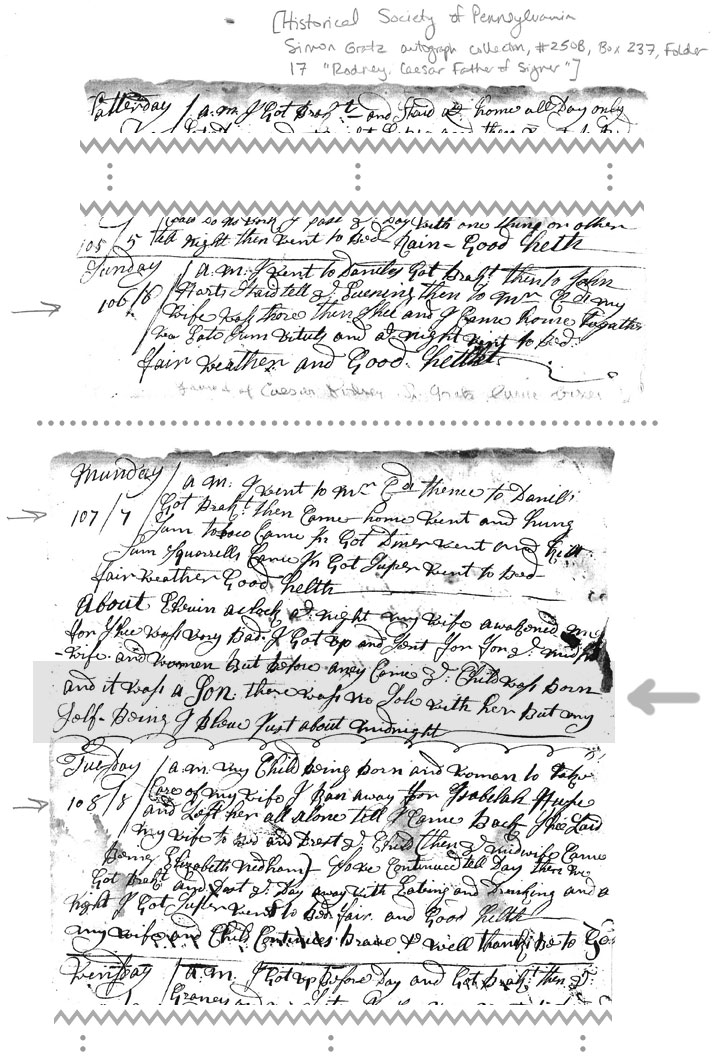 [Historical Society of Pennsylvania
Simon Gratz autograph collection, #250B, Box 237, Folder
17 "Rodney, Caesar Father of Signer"]
Satterday / a.m. I Got Brakft and Staid at home all Day only
part of Day with one thing or other
105/5 till night then went to Bed - Rain - Good helth
Sunday / a.m. I went to Daniels Got Brakft then to John
106/6 Harts Staid tell ye Evening then to Mrs my
Wife wass there then Shee and I Came home togather
wee Eate Sum vituls and at night went to Bed.
fair weather and Good helth
of Caesar Rodney Gratz
Munday / a m. I went to Mrs thence to Daniels
107/7 Got Brakft then Came home went and hung
Sum tobaco Came In Got Diner went and
Sum Squorrells Came In Got Super went to Bed
fair weather Good helth
about Elevin aclock at night my wife awakened me
for Shee wass very Bad. I Got up and Sent for ye mid
-wife and women But before aney Came ye Child wass Born
and it wass a Son. there wass no Sole with her But my
Self- Being I Bleve Just about midnight
Tuesday / a.m. my Child being Born and woman to take
108/8 Care of my wife I Ran away for Isabelah Hughe
and Left her all alone till I Came Back Shee Laid
my wife to Bed and Drest ye Child (then ye midwife Came
being Elizabeth Nedham) Continued tell Day there wee
Got Brakft and Past ye Day away with Eating and Drinking and a
night I Got Super went to Bed fair and Good helth
my wife and Child Continues Brave & well thanks be to God
Wensday / a.m. I Got up before Day and Got Brakft then I
Graney and